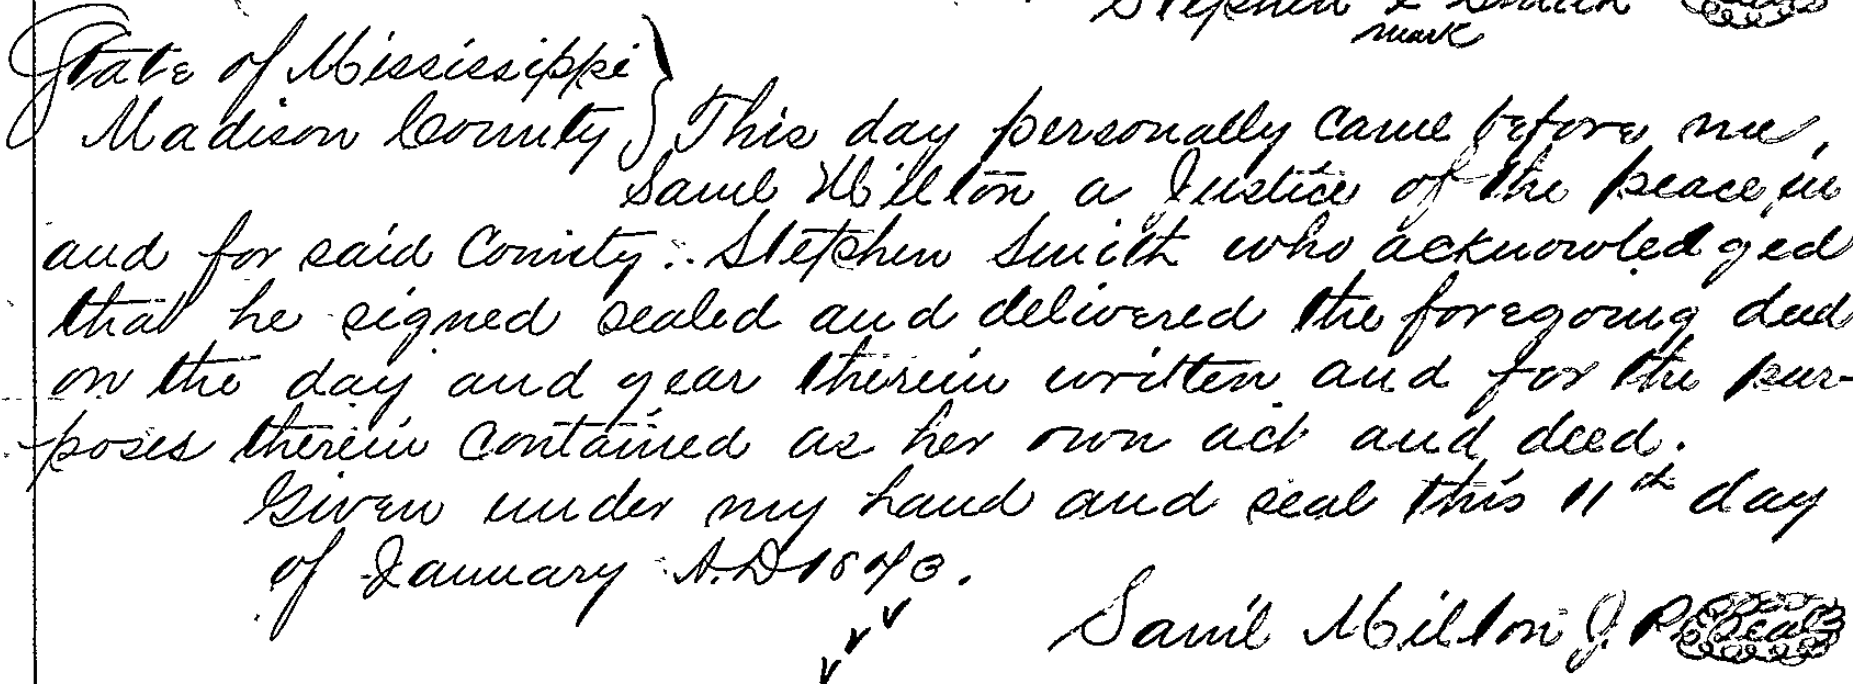 Stephen X Smith Seal
mark
State of Mississippi }
Madison County } This day personally came before me,
Saml Milton a Justice of the peace in
and for said County Stephen Smith who acknowledged
that he signed sealed and delivered the foregoing deed
on the day and year therein written and for the pur-
poses therein contained as her own act and deed.
Given under my hand and seal this 11th day
of January A.D
Saml Milton J.P. Seal